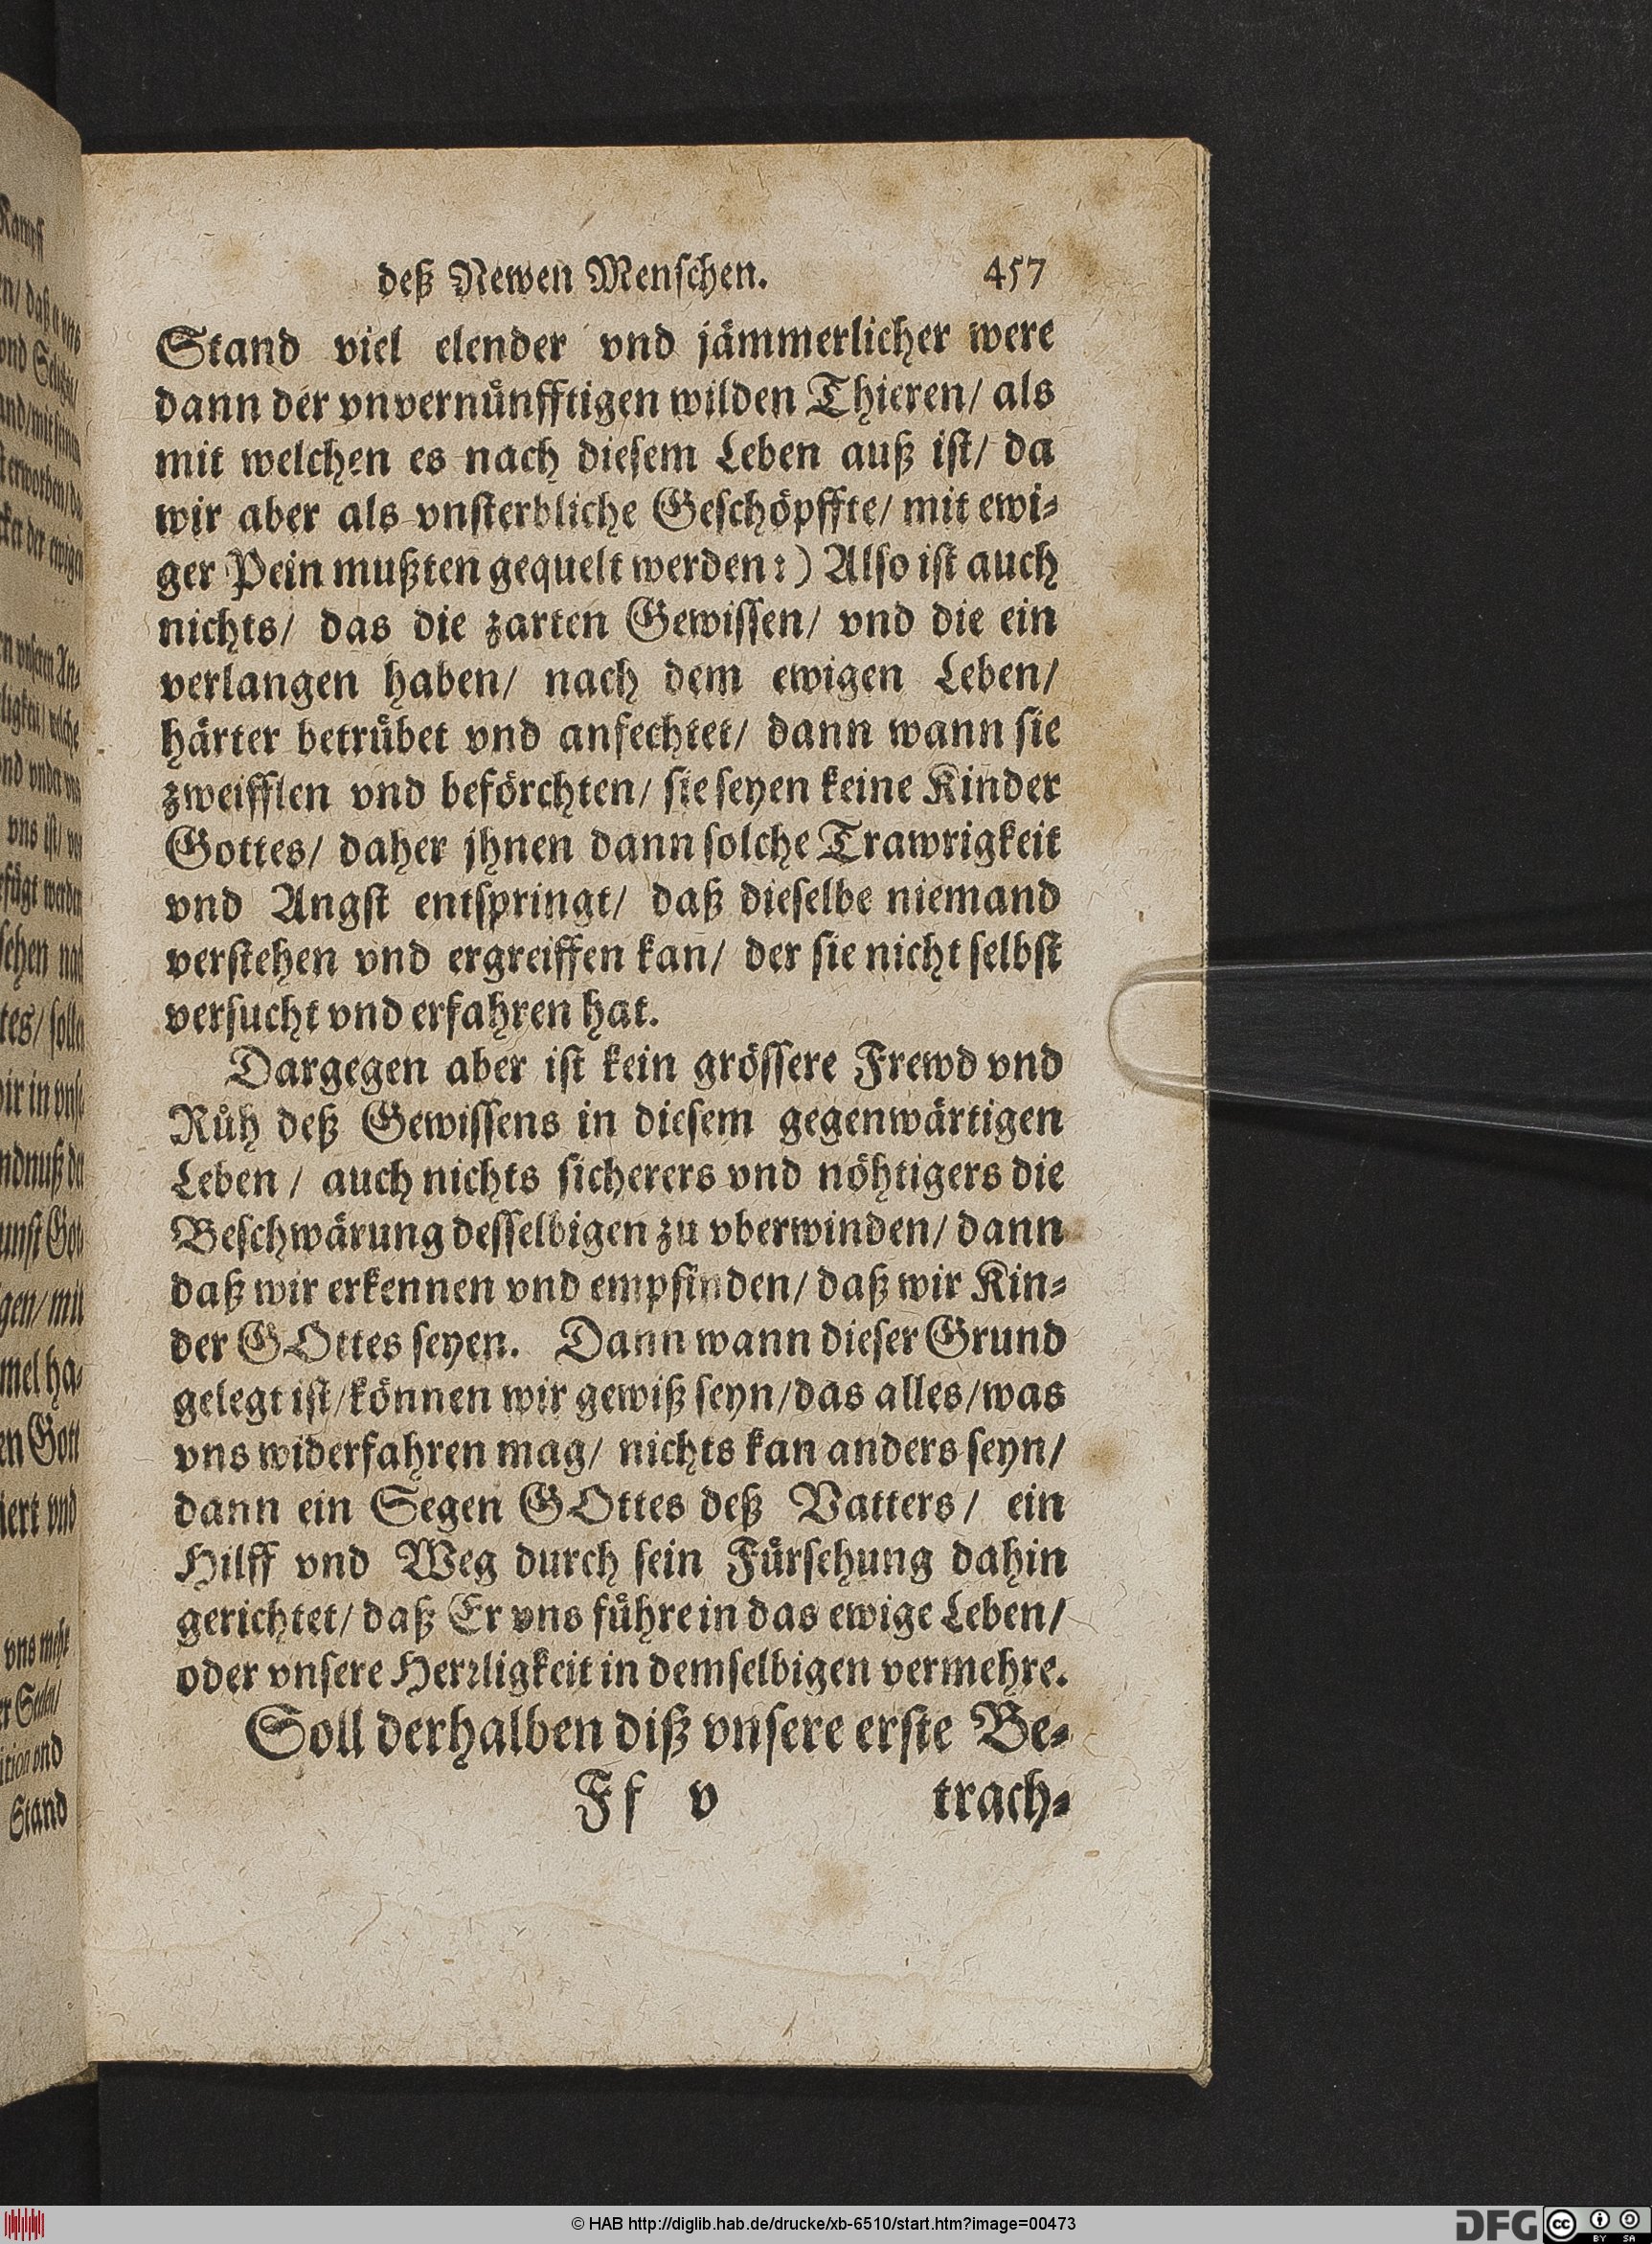 deß Newen Menschen. 457
Stand viel elender vnd jämmerlicher were
dann der vnvernünfftigen wilden Thieren/ als
mit welchen es nach diesem Leben auß ist/ da
wir aber als vnsterbliche Geschöpffte/ mit ewi-
ger Pein mußten gequelt werden:) Also ist auch
nichts/ das die zarten Gewissen/ vnd die ein
verlangen haben/ nach dem ewigen Leben/
härter betrübet vnd anfechtet/ dann wann sie
zweifflen vnd beförchten/ sie seyen keine Kinder
Gottes/ daher jhnen dann solche Trawrigkeit
vnd Angst entspringt/ daß dieselbe niemand
verstehen vnd ergreiffen kan/ der sie nicht selbst
versucht vnd erfahren hat.
Dargegen aber ist kein grössere Frewd vnd
Růh deß Gewissens in diesem gegenwärtigen
Leben / auch nichts sicherers vnd nöhtigers die
Beschwärung desselbigen zu vberwinden/ dann
daß wir erkennen vnd empfinden/ daß wir Kin-
der GOttes seyen. Dann wann dieser Grund
gelegt ist/können wir gewiß seyn/das alles/was
vns widerfahren mag/ nichts kan anders seyn/
dann ein Segen GOttes deß Vatters/ ein
Hilff vnd Weg durch sein Fürsehung dahin
gerichtet/ daß Er vns führe in das ewige Leben/
oder vnsere Herrligkeit in demselbigen vermehre.
Soll derhalben diß vnsere erste Be-
Ff v trach-
© HAB http://diglib.hab.de/drucke/xb-6510/start.htm?image=00473
DFG
CC BY SA